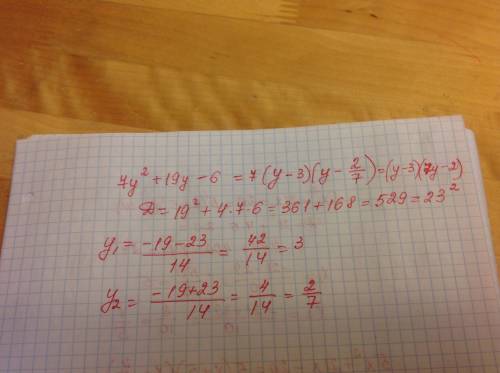 7y² + 19y - 6 = 7(y - 3)(y - 2/7) = (y - 3)(7y - 2)
Д = 19² + 4·7·6 = 361 + 168 = 529 = 23²
y₁ = (-19 - 23)/14 = 42/14 = 3
y₂ = (-19 + 23)/14 = 4/14 = 2/7